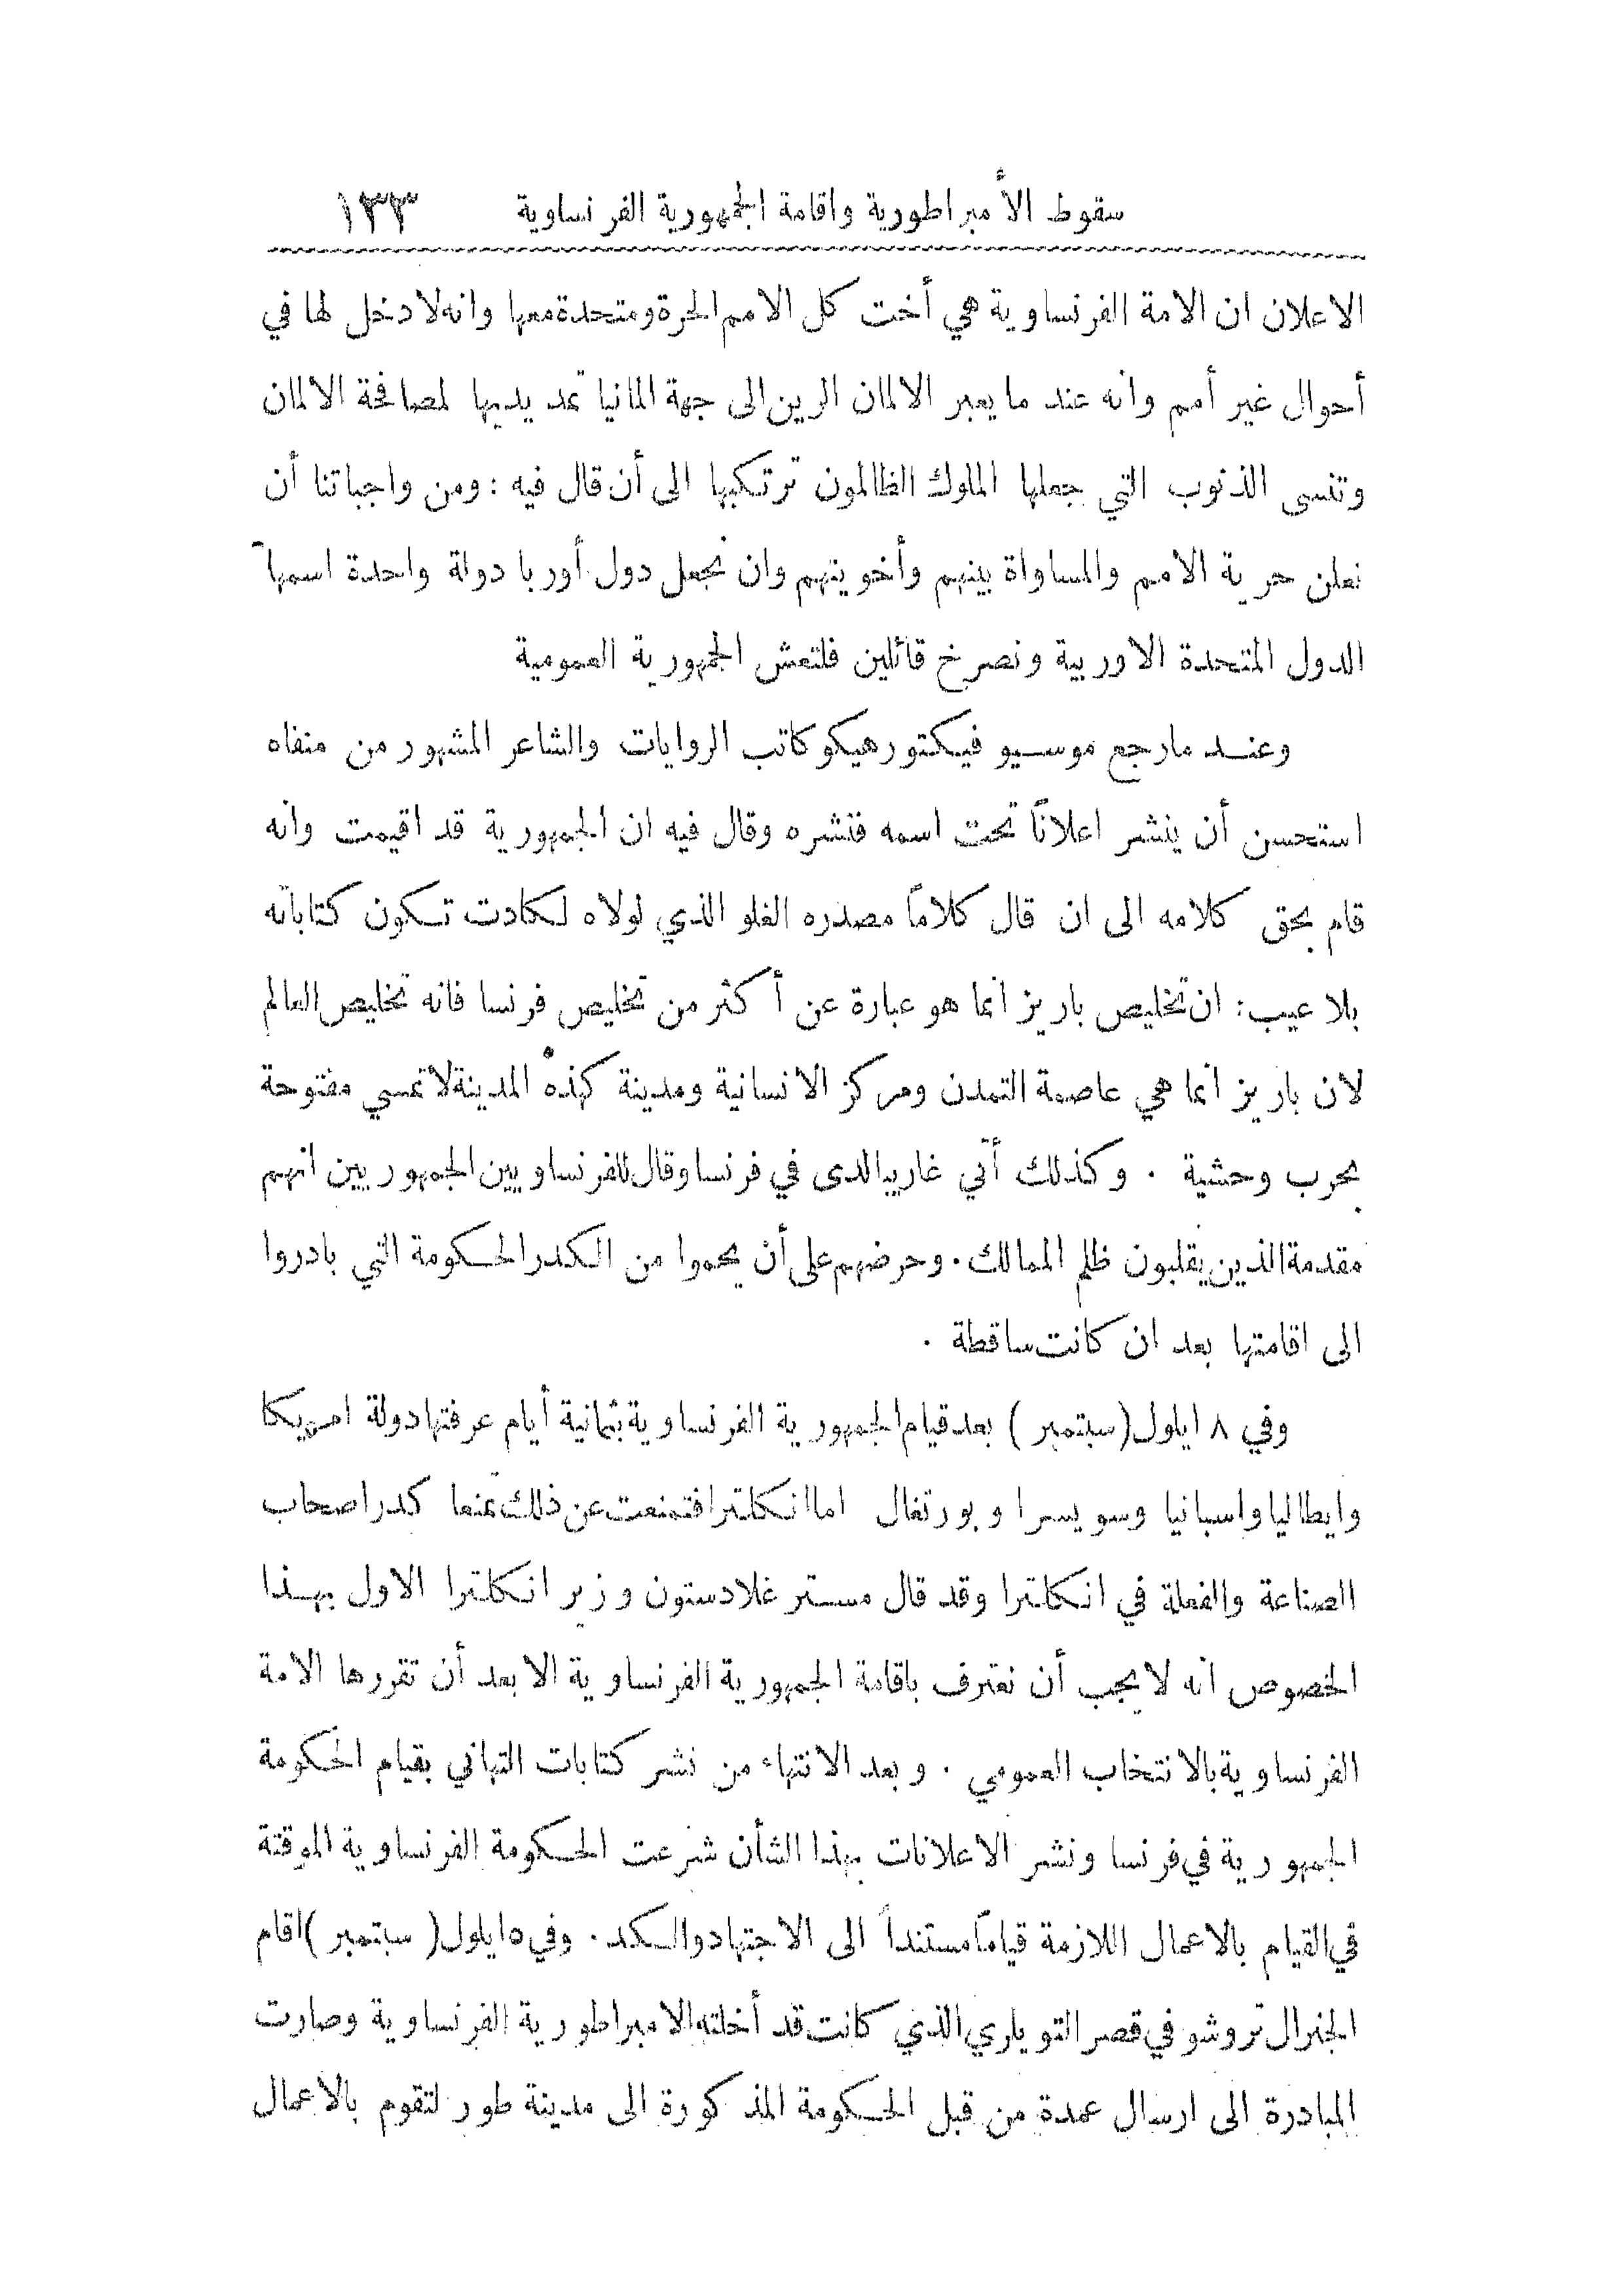 سقوط الأمبراطورية واقامة الجمهورية الفرنساوية ١٣٣
الاعلان ان الامة الفرنساوية هي أخت كل الامم الحرة ومتحدة معها وانه لا دخل لها في
أحوال غير أمم وانه عند ما يعبر الالمان الرين الى جهة المانيا تمد يديها لمصافحة الالمان
وتنسى الذنوب التي جعلها الملوك الظالمون ترتكبها الى أن قال فيه : ومن واجباتنا أن
نعلن حرية الامم والمساواة بينهم وأخويتهم وان نجعل دول أوربا دولة واحدة اسمها
الدول المتحدة الاوربية ونصرخ قائلين فلتعش الجمهورية العمومية
وعند ما رجع موسيو فيكتور هيكو كاتب الروايات والشاعر المشهور من منفاه
استحسن أن ينشر اعلاناً تحت اسمه فنشره وقال فيه ان الجمهورية قد اقيمت وانه
قام بحق كلامه الى ان قال كلاماً مصدره الغلو الذي لولاه لكادت تكون كتاباته
بلا عيب : ان تخليص باريز انما هو عبارة عن أكثر من تخليص فرنسا فانه تخليص العالم
لان باريز انما هي عاصمة التمدن ومركز الانسانية ومدينة كهذه المدينة لا تمسي مفتوحة
بحرب وحشية . وكذلك أتي غاريبالدى في فرنسا وقال للفرنساويين الجمهوريين انهم
مقدمة الذين يقلبون ظلم الممالك . وحرضهم على أن يحموا من الكدر الحكومة التي بادروا
الى اقامتها بعد ان كانت ساقطة .
وفي ٨ ايلول (سبتمبر) بعد قيام الجمهورية الفرنساوية بثمانية أيام عرفتها دولة امريكا
وايطاليا واسبانيا وسويسرا وبورتغال اما انكلترا فتمنعت عن ذلك تمنعا كدر اصحاب
الصناعة والفعلة في انكلترا وقد قال مستر غلادستون وزير انكلترا الاول بهذا
الخصوص انه لا يجب أن نعترف باقامة الجمهورية الفرنساوية الا بعد أن تقررها الامة
الفرنساوية بالانتخاب العمومي . وبعد الانتهاء من نشر كتابات التهاني بقيام الحكومة
الجمهورية في فرنسا ونشر الاعلانات بهذا الشأن شرعت الحكومة الفرنساوية الموقتة
في القيام بالاعمال اللازمة قياماً مستنداً الى الاجتهاد والكد . وفي ٥ ايلول (سبتمبر) اقام
الجنرال تروشو في قصر التويلري الذي كانت قد أخلته الامبراطورية الفرنساوية وصارت
المبادرة الى ارسال عمدة من قبل الحكومة المذكورة الى مدينة طور لتقوم بالاعمال